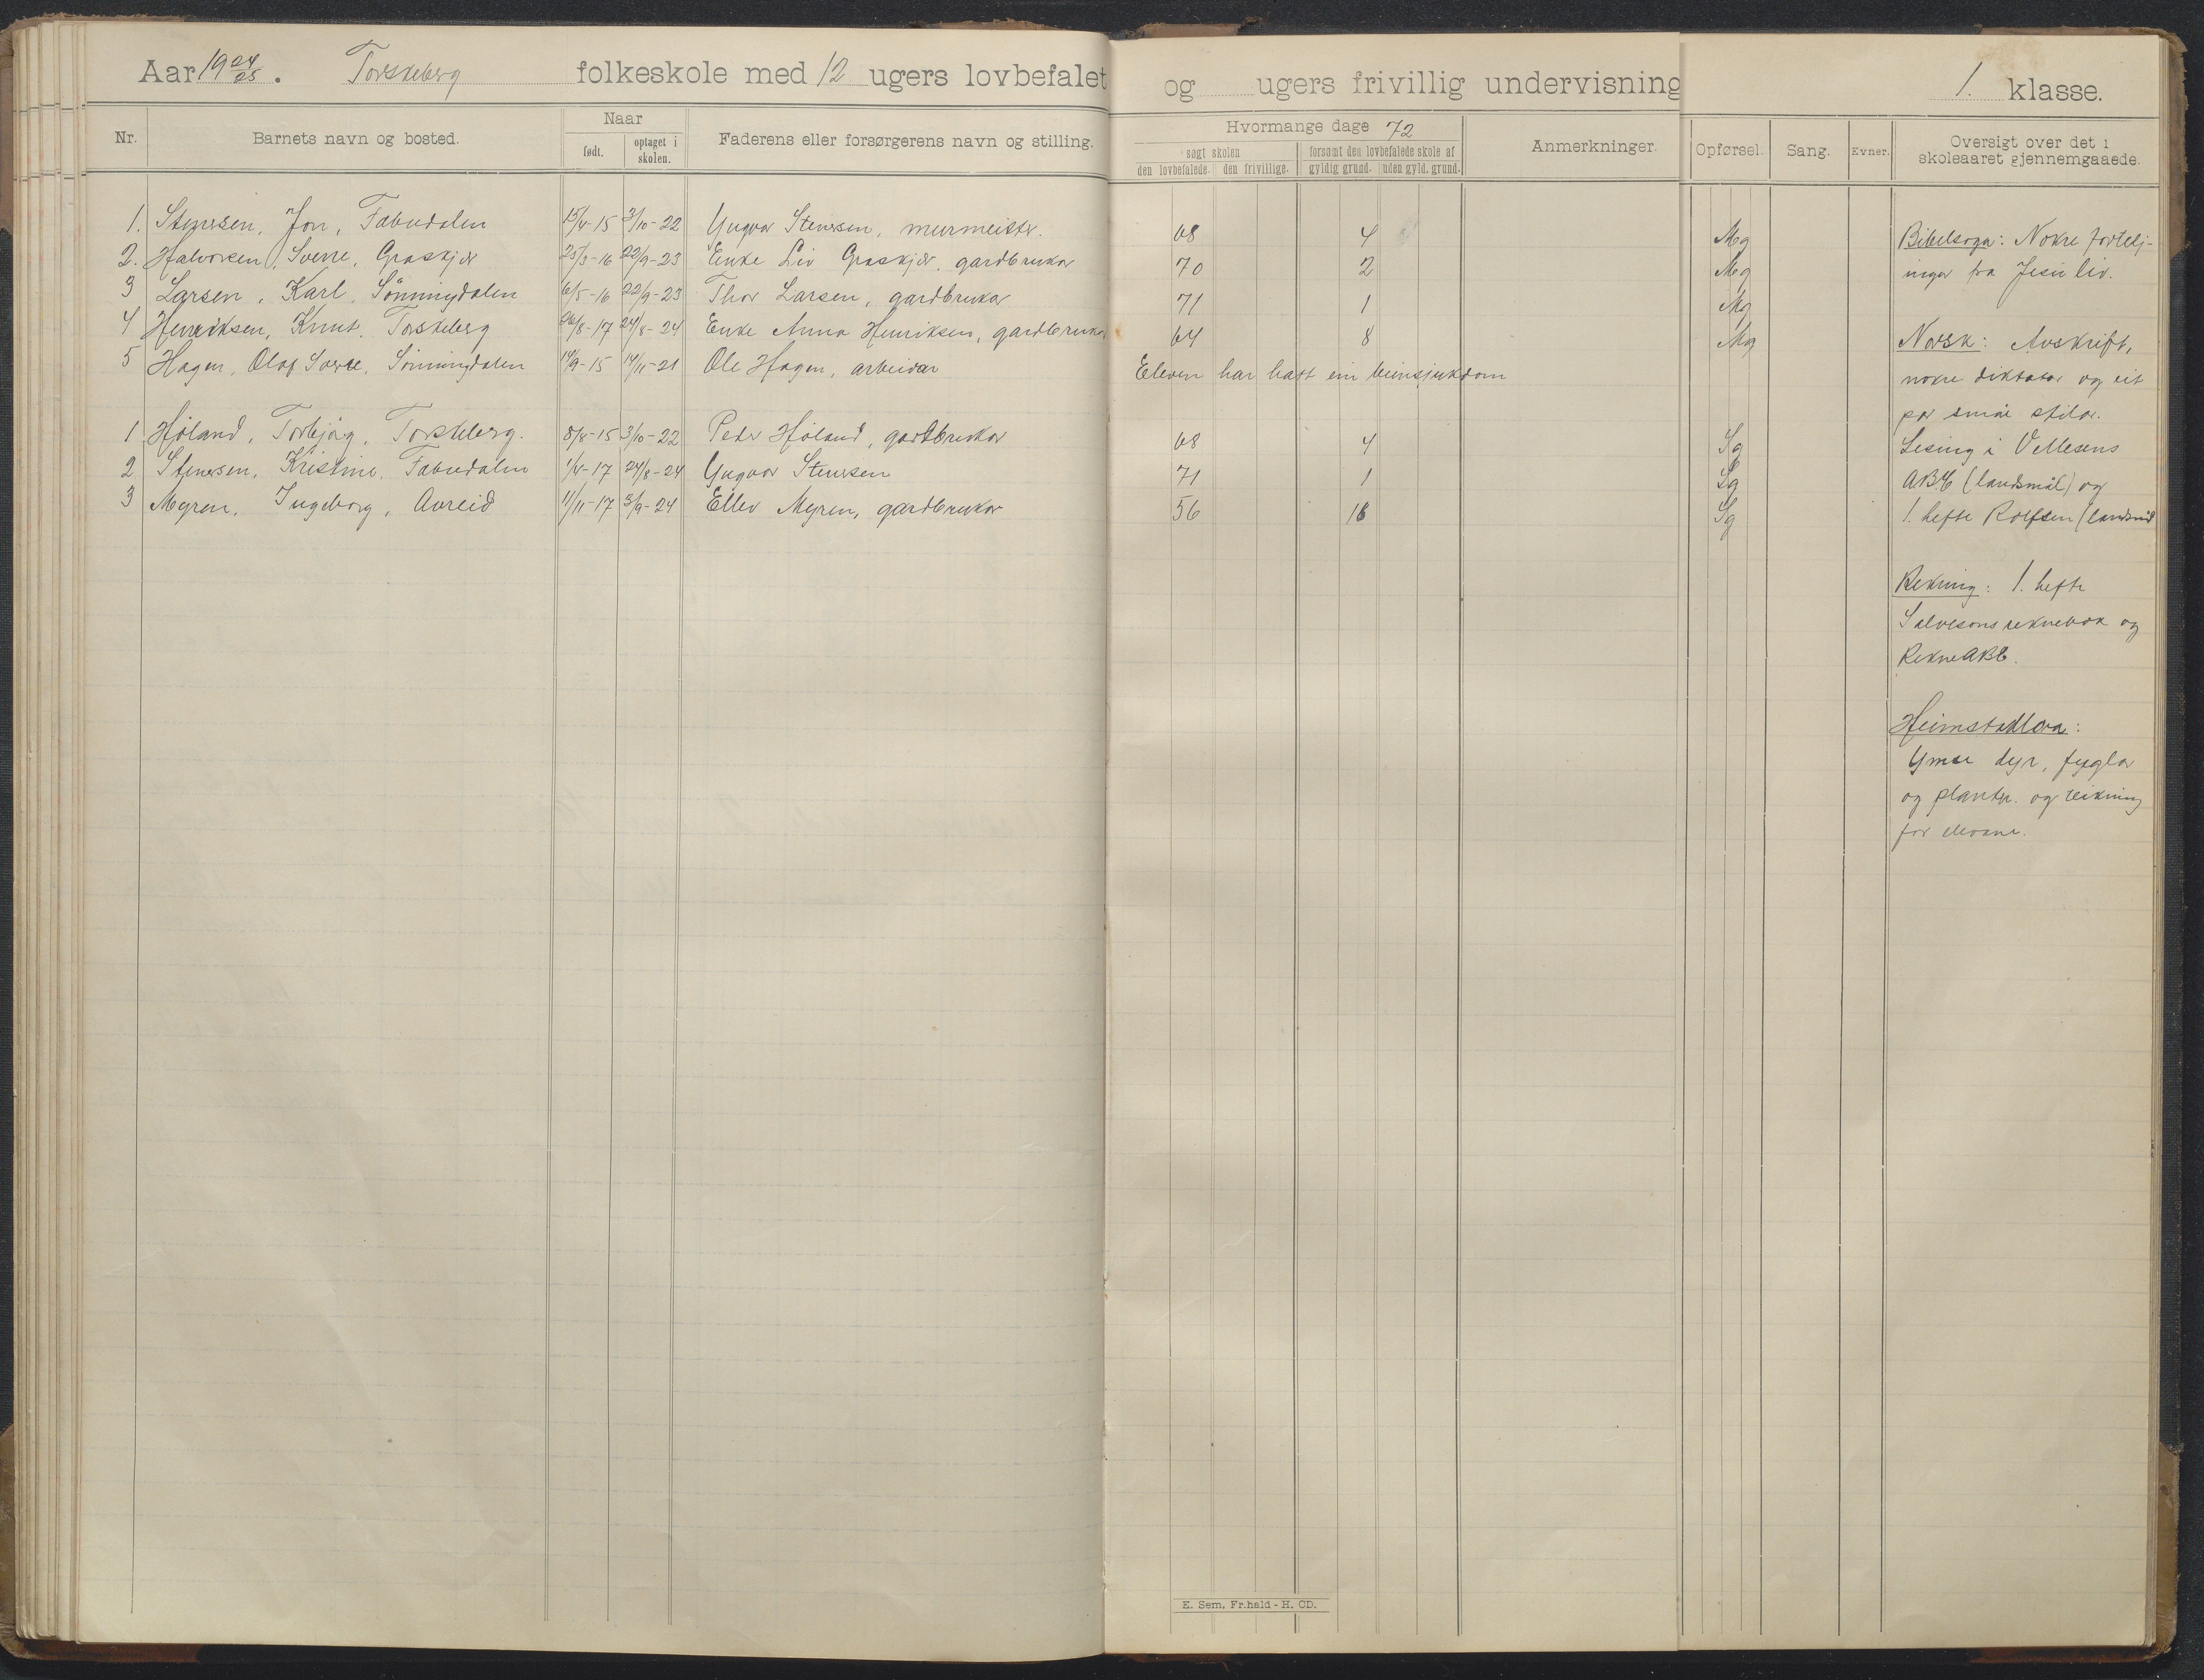 Aar 1924/25. Torskeberg folkeskole med 12 ugers lovbefalet og ugers frivillig undervisning 1. klasse.
Nr. Barnets navn og bosted. Naar født. optaget i skolen. Faderens eller forsørgerens navn og stilling. Hvormange dage 72 søgt skolen den lovbefalede. den frivillige. forsømt den lovbefalede skole af gyldig grund. uden gyld. grund. Anmerkninger. Opførsel. Sang. Evner. Oversigt over det i skoleaaret gjennemgaaede.
1. Stenersen, Jon, Fabudalen 15/4-15 3/10-22 Yngvar Stenersen, murmeister. 68 4 Mg
2. Halvorsen, Sverre, Graskjær 25/3-16 22/9-23 Enke Liv Graskjær, gardbrukar 70 2 Mg
3 Larsen, Karl, Sönningdalen 6/5-16 22/9-23 Thor Larsen, gardbrukar 71 1 Mg
4 Henriksen, Knut, Torskeberg 26/8-17 24/8-24 Enke Anna Henriksen, gardbrukar 64 8 Mg
5 Hagen, Olaf Sverre, Sönningdalen 14/9-15 14/11-21 Ole Hagen, arbeidar Eleven har hatt ein beinsjukdom
1 Høland, Torbjørg, Torskeberg. 8/8-15 3/10-22 Peder Høland, gardbrukar 68 4 Sg
2 Stenersen, Kristine, Fabudalen 1/4-17 24/8-24 Yngvar Stenersen 71 1 Sg
3 Myren, Ingeborg, Avreid 11/11-17 3/9-24 Ellev Myren, gardbrukar 56 16 Sg
Bibelsoga: Nokre fortelj-
ingar fra Jesu liv.
Norsk: Avskrift,
nokre diktatar og eit
par små stilar.
Lesing i Vellesens
ABC (landsmål) og
1. hefte Rolfsen (landsmål
Rekning: 1. hefte
Salvesons reknebok og
Rekne ABC.
Heimstadlæra:
Ymse dyr, fuglar
og planter. og teikning
for elevane.
E. Sem, Fr.hald - H. CD.